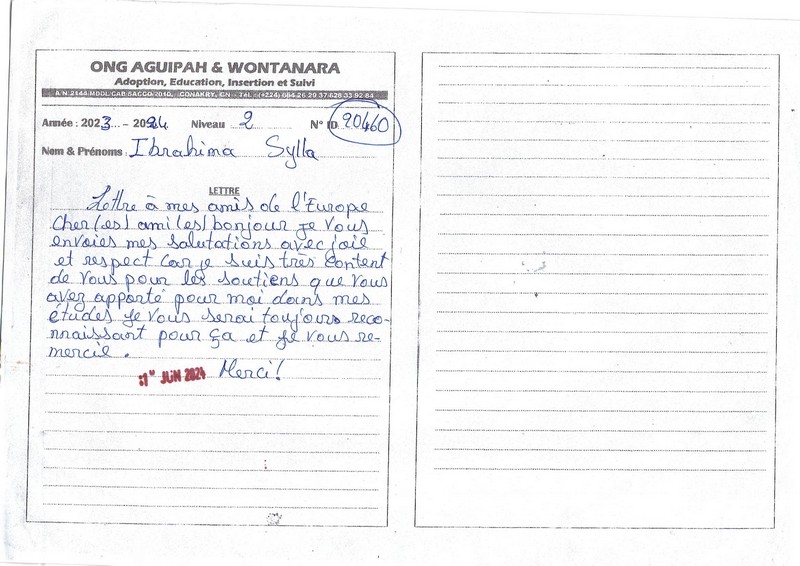 ONG AGUIPAH & WONTANARA
Adoption, Education, Insertion et Suivi
Année : 2023 - 2024 Niveau 2 N° ID 90460
Nom & Prénoms : Ibrahima Sylla
LETTRE
Lettre à mes amis de l'Europe
Cher(es) ami(es) bonjour je vous
envoies mes salutations avec joie
et respect car je suis très content
de vous pour les soutiens que vous
avez apporté pour moi dans mes
études je vous serai toujours reco-
nnaissant pour ça et je vous re-
mercie.
Merci!
JUIN 2024